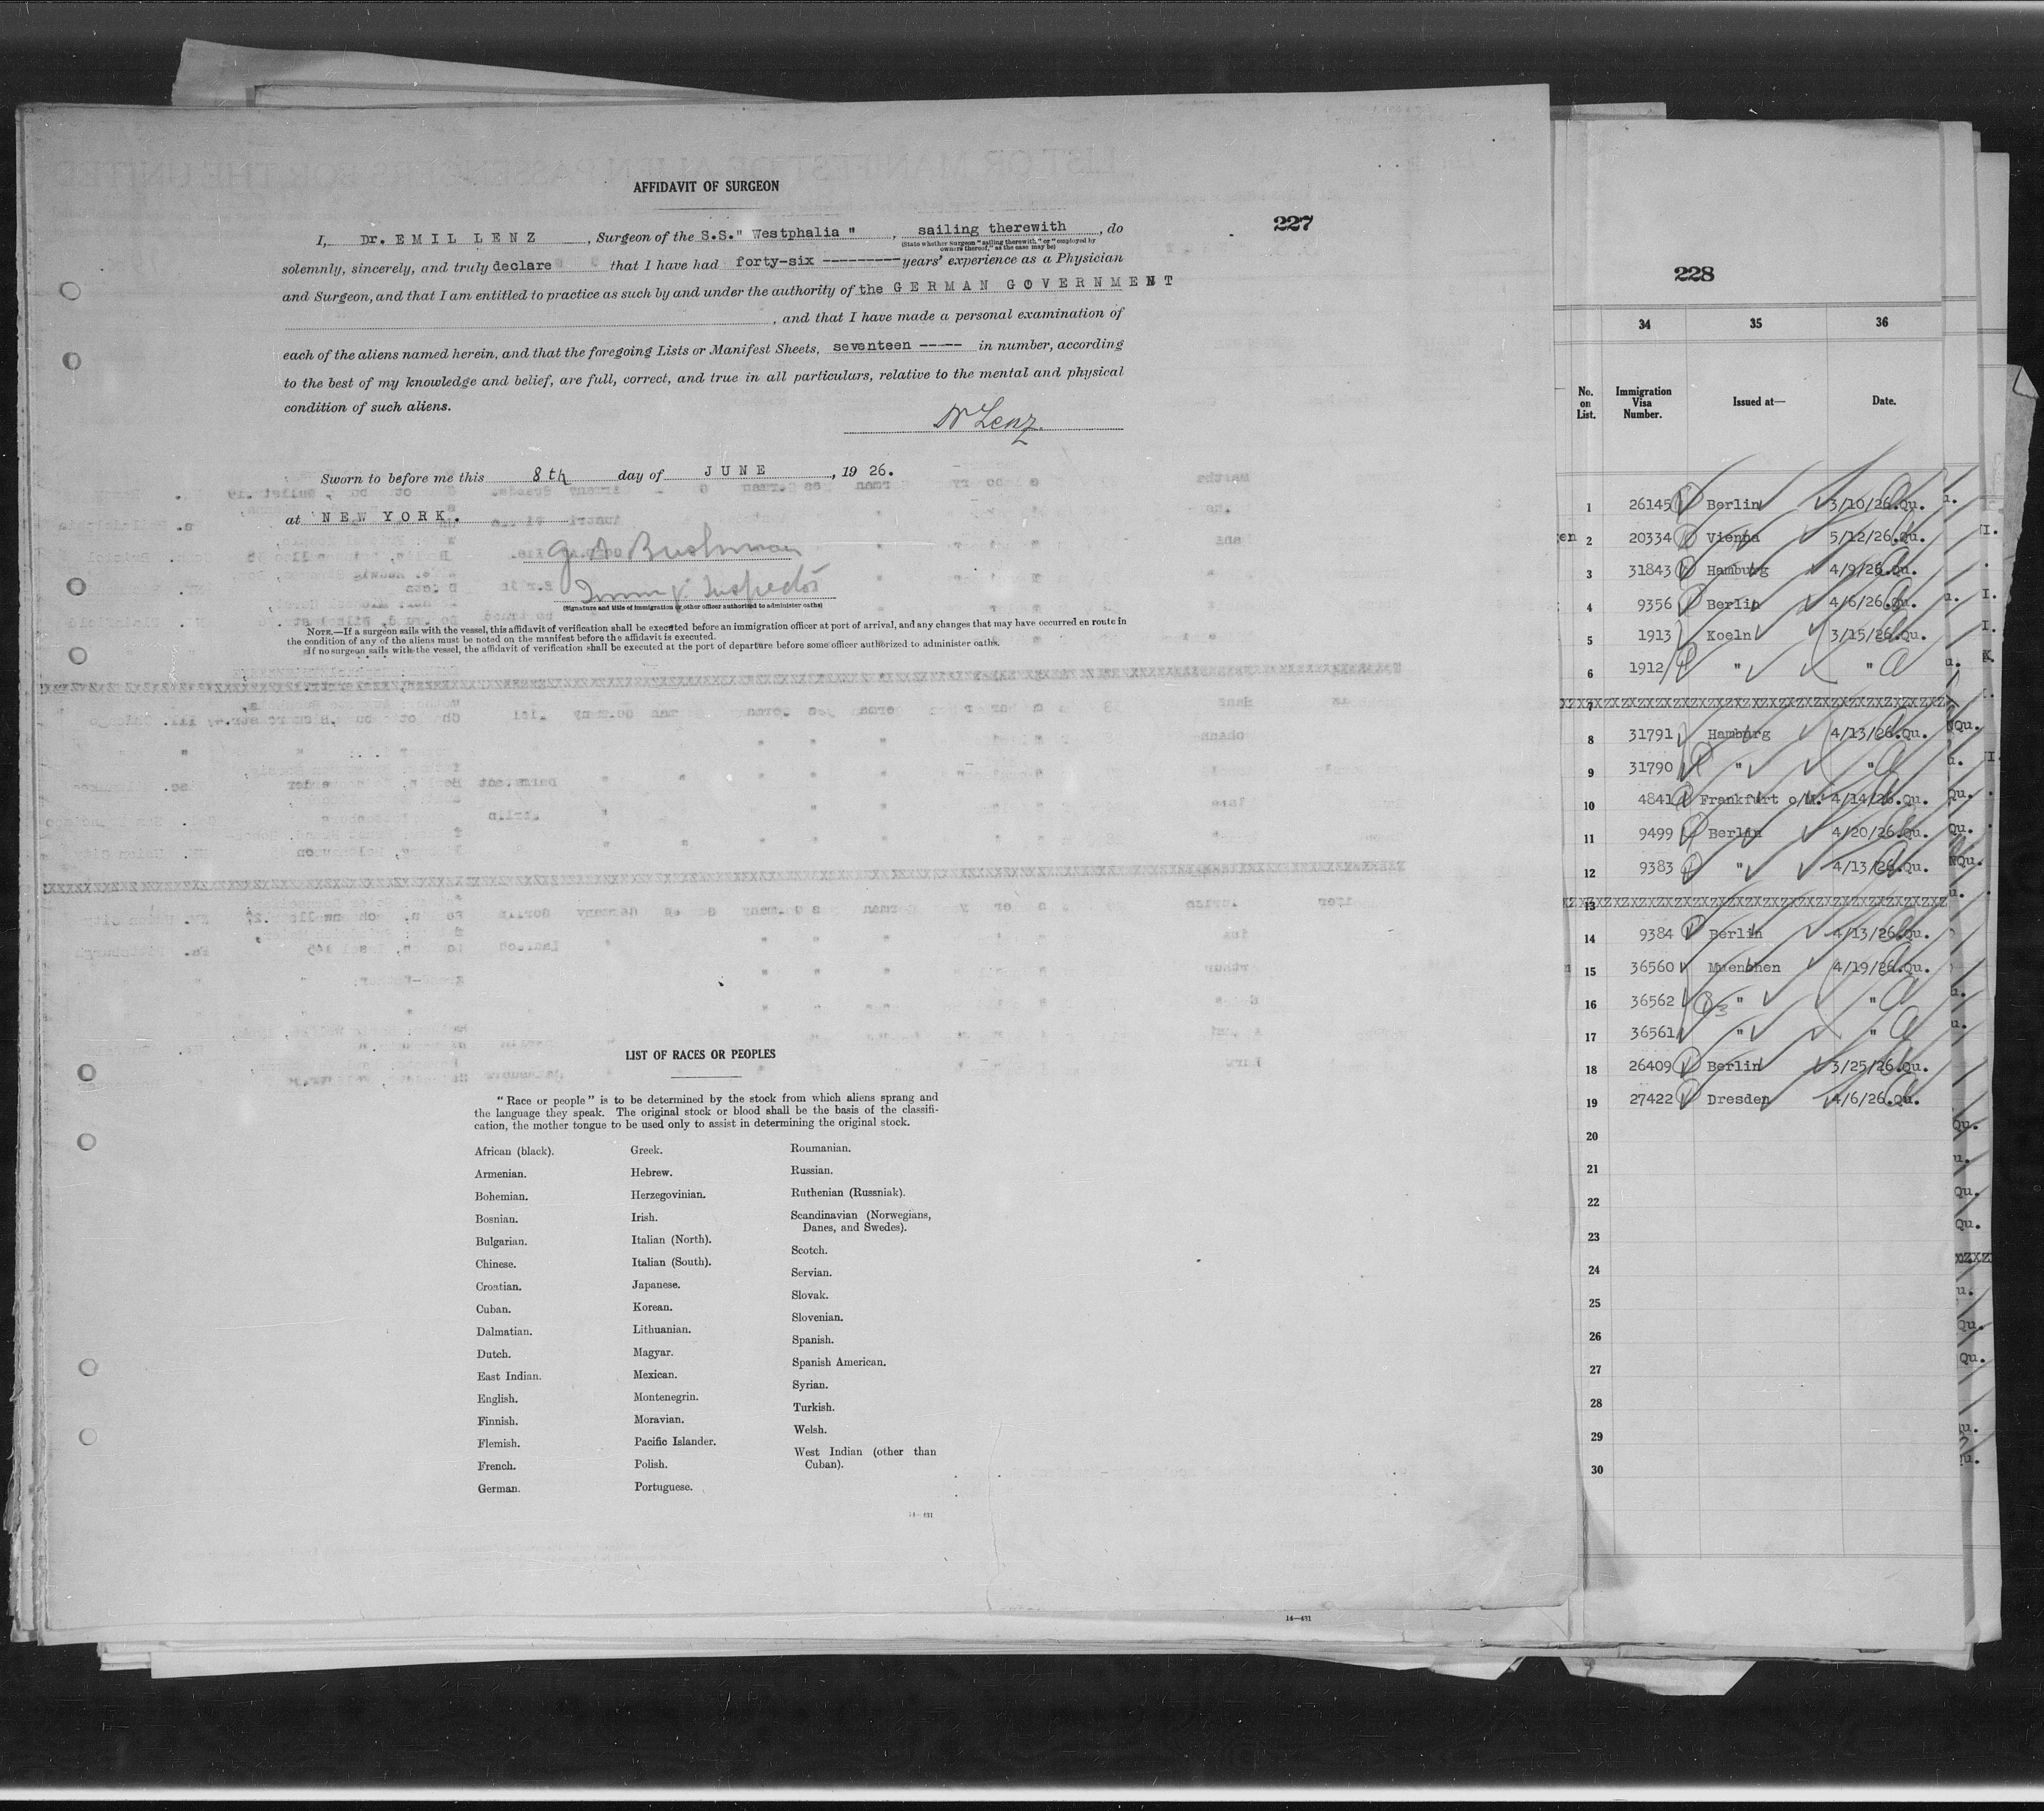 AFFIDAVIT OF SURGEON
227
I, Dr. E M I L L E N Z , Surgeon of the S.S." Westphalia " , sailing therewith , do
(State whether Surgeon "sailing therewith," or "employed by
owners thereof," as the case may be)
solemnly, sincerely, and truly declare that I have had forty-six --------- years' experience as a Physician
and Surgeon, and that I am entitled to practice as such by and under the authority of the G E R M A N G O V E R N M E N T
, and that I have made a personal examination of
each of the aliens named herein, and that the foregoing Lists or Manifest Sheets, seventeen ----- in number, according
to the best of my knowledge and belief, are full, correct, and true in all particulars, relative to the mental and physical
condition of such aliens.
Dr Lenz.
Sworn to before me this 8th day of J U N E , 19 26.
at N E W Y O R K .
Bushman
Immn Inspector
(Signature and title of immigration or other officer authorized to administer oaths)
NOTE.—If a surgeon sails with the vessel, this affidavit of verification shall be executed before an immigration officer at port of arrival, and any changes that may have occurred en route in
the condition of any of the aliens must be noted on the manifest before the affidavit is executed.
If no surgeon sails with the vessel, the affidavit of verification shall be executed at the port of departure before some officer authorized to administer oaths.
LIST OF RACES OR PEOPLES
"Race or people" is to be determined by the stock from which aliens sprang and
the language they speak. The original stock or blood shall be the basis of the classifi-
cation, the mother tongue to be used only to assist in determining the original stock.
African (black).
Armenian.
Bohemian.
Bosnian.
Bulgarian.
Chinese.
Croatian.
Cuban.
Dalmatian.
Dutch.
East Indian.
English.
Finnish.
Flemish.
French.
German.
Greek.
Hebrew.
Herzegovinian.
Irish.
Italian (North).
Italian (South).
Japanese.
Korean.
Lithuanian.
Magyar.
Mexican.
Montenegrin.
Moravian.
Pacific Islander.
Polish.
Portuguese.
Roumanian.
Russian.
Ruthenian (Russniak).
Scandinavian (Norwegians,
Danes, and Swedes).
Scotch.
Servian.
Slovak.
Slovenian.
Spanish.
Spanish American.
Syrian.
Turkish.
Welsh.
West Indian (other than
Cuban).
14—431
14—431
228
34 35 36
No. on List. Immigration Visa Number. Issued at— Date.
1 26145 Berlin 3/10/26.Qu.
2 20334 Vienna 5/12/26.Qu.
3 31843 Hamburg 4/9/26.Qu.
4 9356 Berlin 4/6/26.Qu.
5 1913 Koeln 3/15/26.Qu.
6 1912 " "
7
8 31791 Hamburg 4/13/26.Qu.
9 31790 " "
10 4841 Frankfurt o/M. 4/14/26.Qu.
11 9499 Berlin 4/20/26.Qu.
12 9383 " 4/13/26.Qu.
13
14 9384 Berlin 4/13/26.Qu.
15 36560 Muenchen 4/19/26.Qu.
16 36562 " "
17 36561 " "
18 26409 Berlin 3/25/26.Qu.
19 27422 Dresden 4/6/26.Qu.
20
21
22
23
24
25
26
27
28
29
30